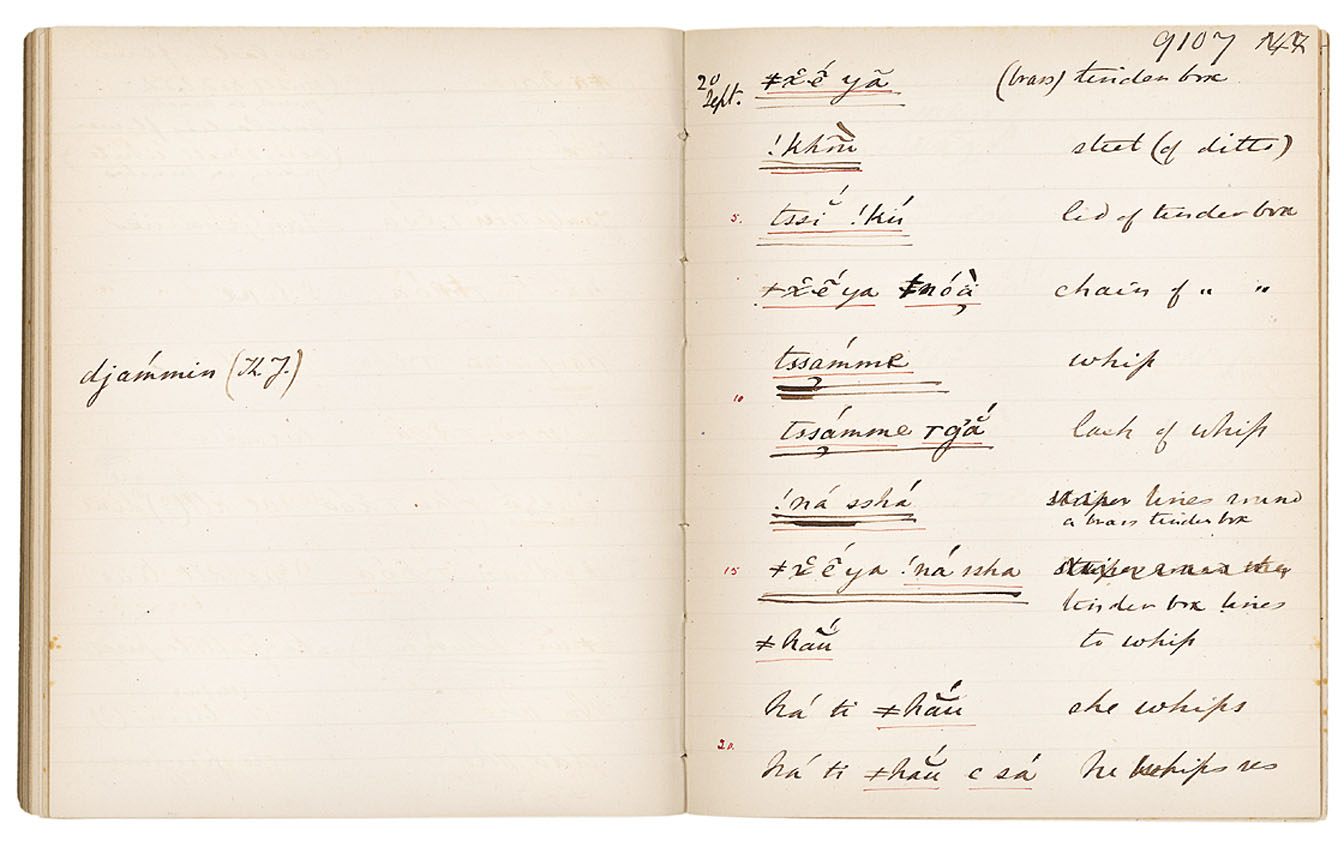 djámmin (Th. J.)
9107
20 Sept. ǂx̊é̆yã (brass) tinder box
!khȭù steel (of ditto)
5. tssĭ́ !kú lid of tinder box
ǂx̊é̆ya ǂnóà̦ chain of " "
tssá̦mme whip
10 tssá̦mme rgắ lash of whip
!ná sshá lines round
a brass tinder box
15 ǂx̊é̆ya !ná ssha
tinder box lines
ǂhaŭ́ to whip
há ti ǂhaŭ́ she whips
20. há ti ǂhaŭ́ c sá he whips us